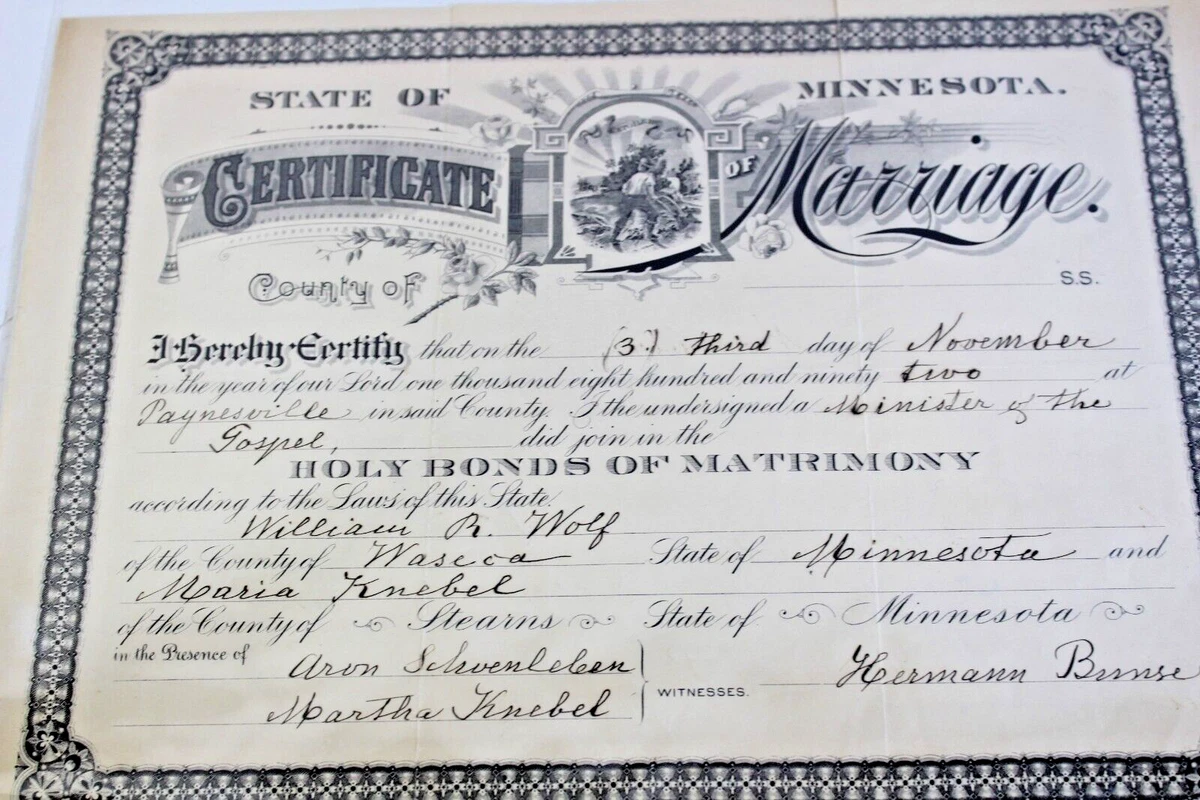 STATE OF MINNESOTA.
CERTIFICATE OF Marriage.
County of S.S.
I Hereby Certify that on the (3.) third day of November
in the year of our Lord one thousand eight hundred and ninety two at
Paynesville in said County. I the undersigned a Minister of the
Gospel, did join in the
HOLY BONDS OF MATRIMONY
according to the Laws of this State.
William R. Wolf
of the County of Waseca State of Minnesota and
Maria Knebel
of the County of Stearns State of Minnesota
in the Presence of Aron Schoenleben
Martha Knebel WITNESSES. Hermann Bunse